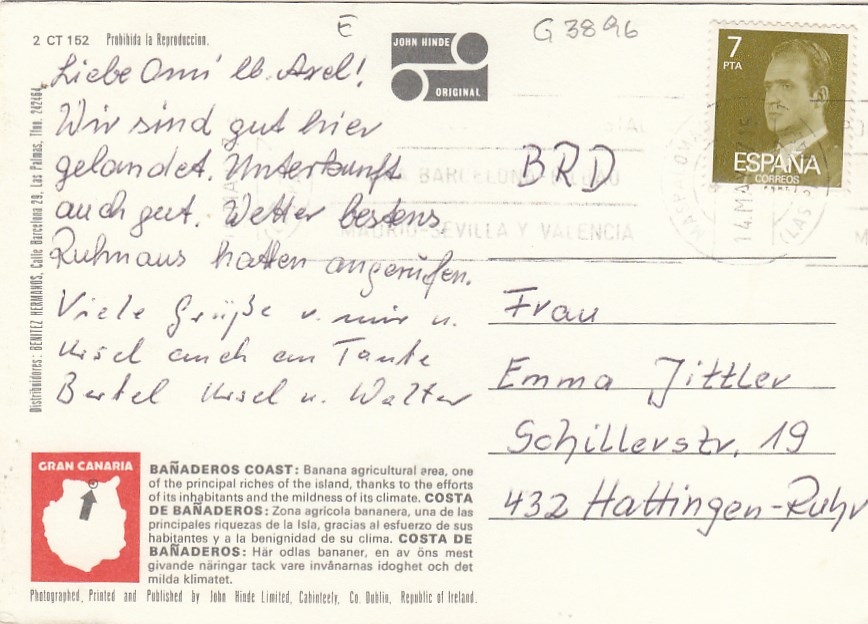 2 CT 152 Prohibida la Reproduccion.
E
G 3896
JOHN HINDE
ORIGINAL
7
PTA
ESPAÑA
CORREOS
14.MA
BARCELONA-BILBAO
MADRID-SEVILLA Y VALENCIA
Distribuidores: BENITEZ HERMANOS, Calle Barcelona 29, Las Palmas, Tfno. 242464
Liebe Omi lb. Axel!
Wir sind gut hier
gelandet. Unterkunft
auch gut. Wetter bestens
Ruhnaus hatten angerufen.
Viele Grüße v. mir u.
Ursel auch an Tante
Bertel Ursel u. Walter
BRD
Frau
Emma Jittler
Schillerstr. 19
432 Hattingen-Ruhr
GRAN CANARIA
BAÑADEROS COAST: Banana agricultural area, one
of the principal riches of the island, thanks to the efforts
of its inhabitants and the mildness of its climate. COSTA
DE BAÑADEROS: Zona agrícola bananera, una de las
principales riquezas de la Isla, gracias al esfuerzo de sus
habitantes y a la benignidad de su clima. COSTA DE
BAÑADEROS: Här odlas bananer, en av öns mest
givande näringar tack vare invånarnas idoghet och det
milda klimatet.
Photographed, Printed and Published by John Hinde Limited, Cabinteely, Co. Dublin, Republic of Ireland.